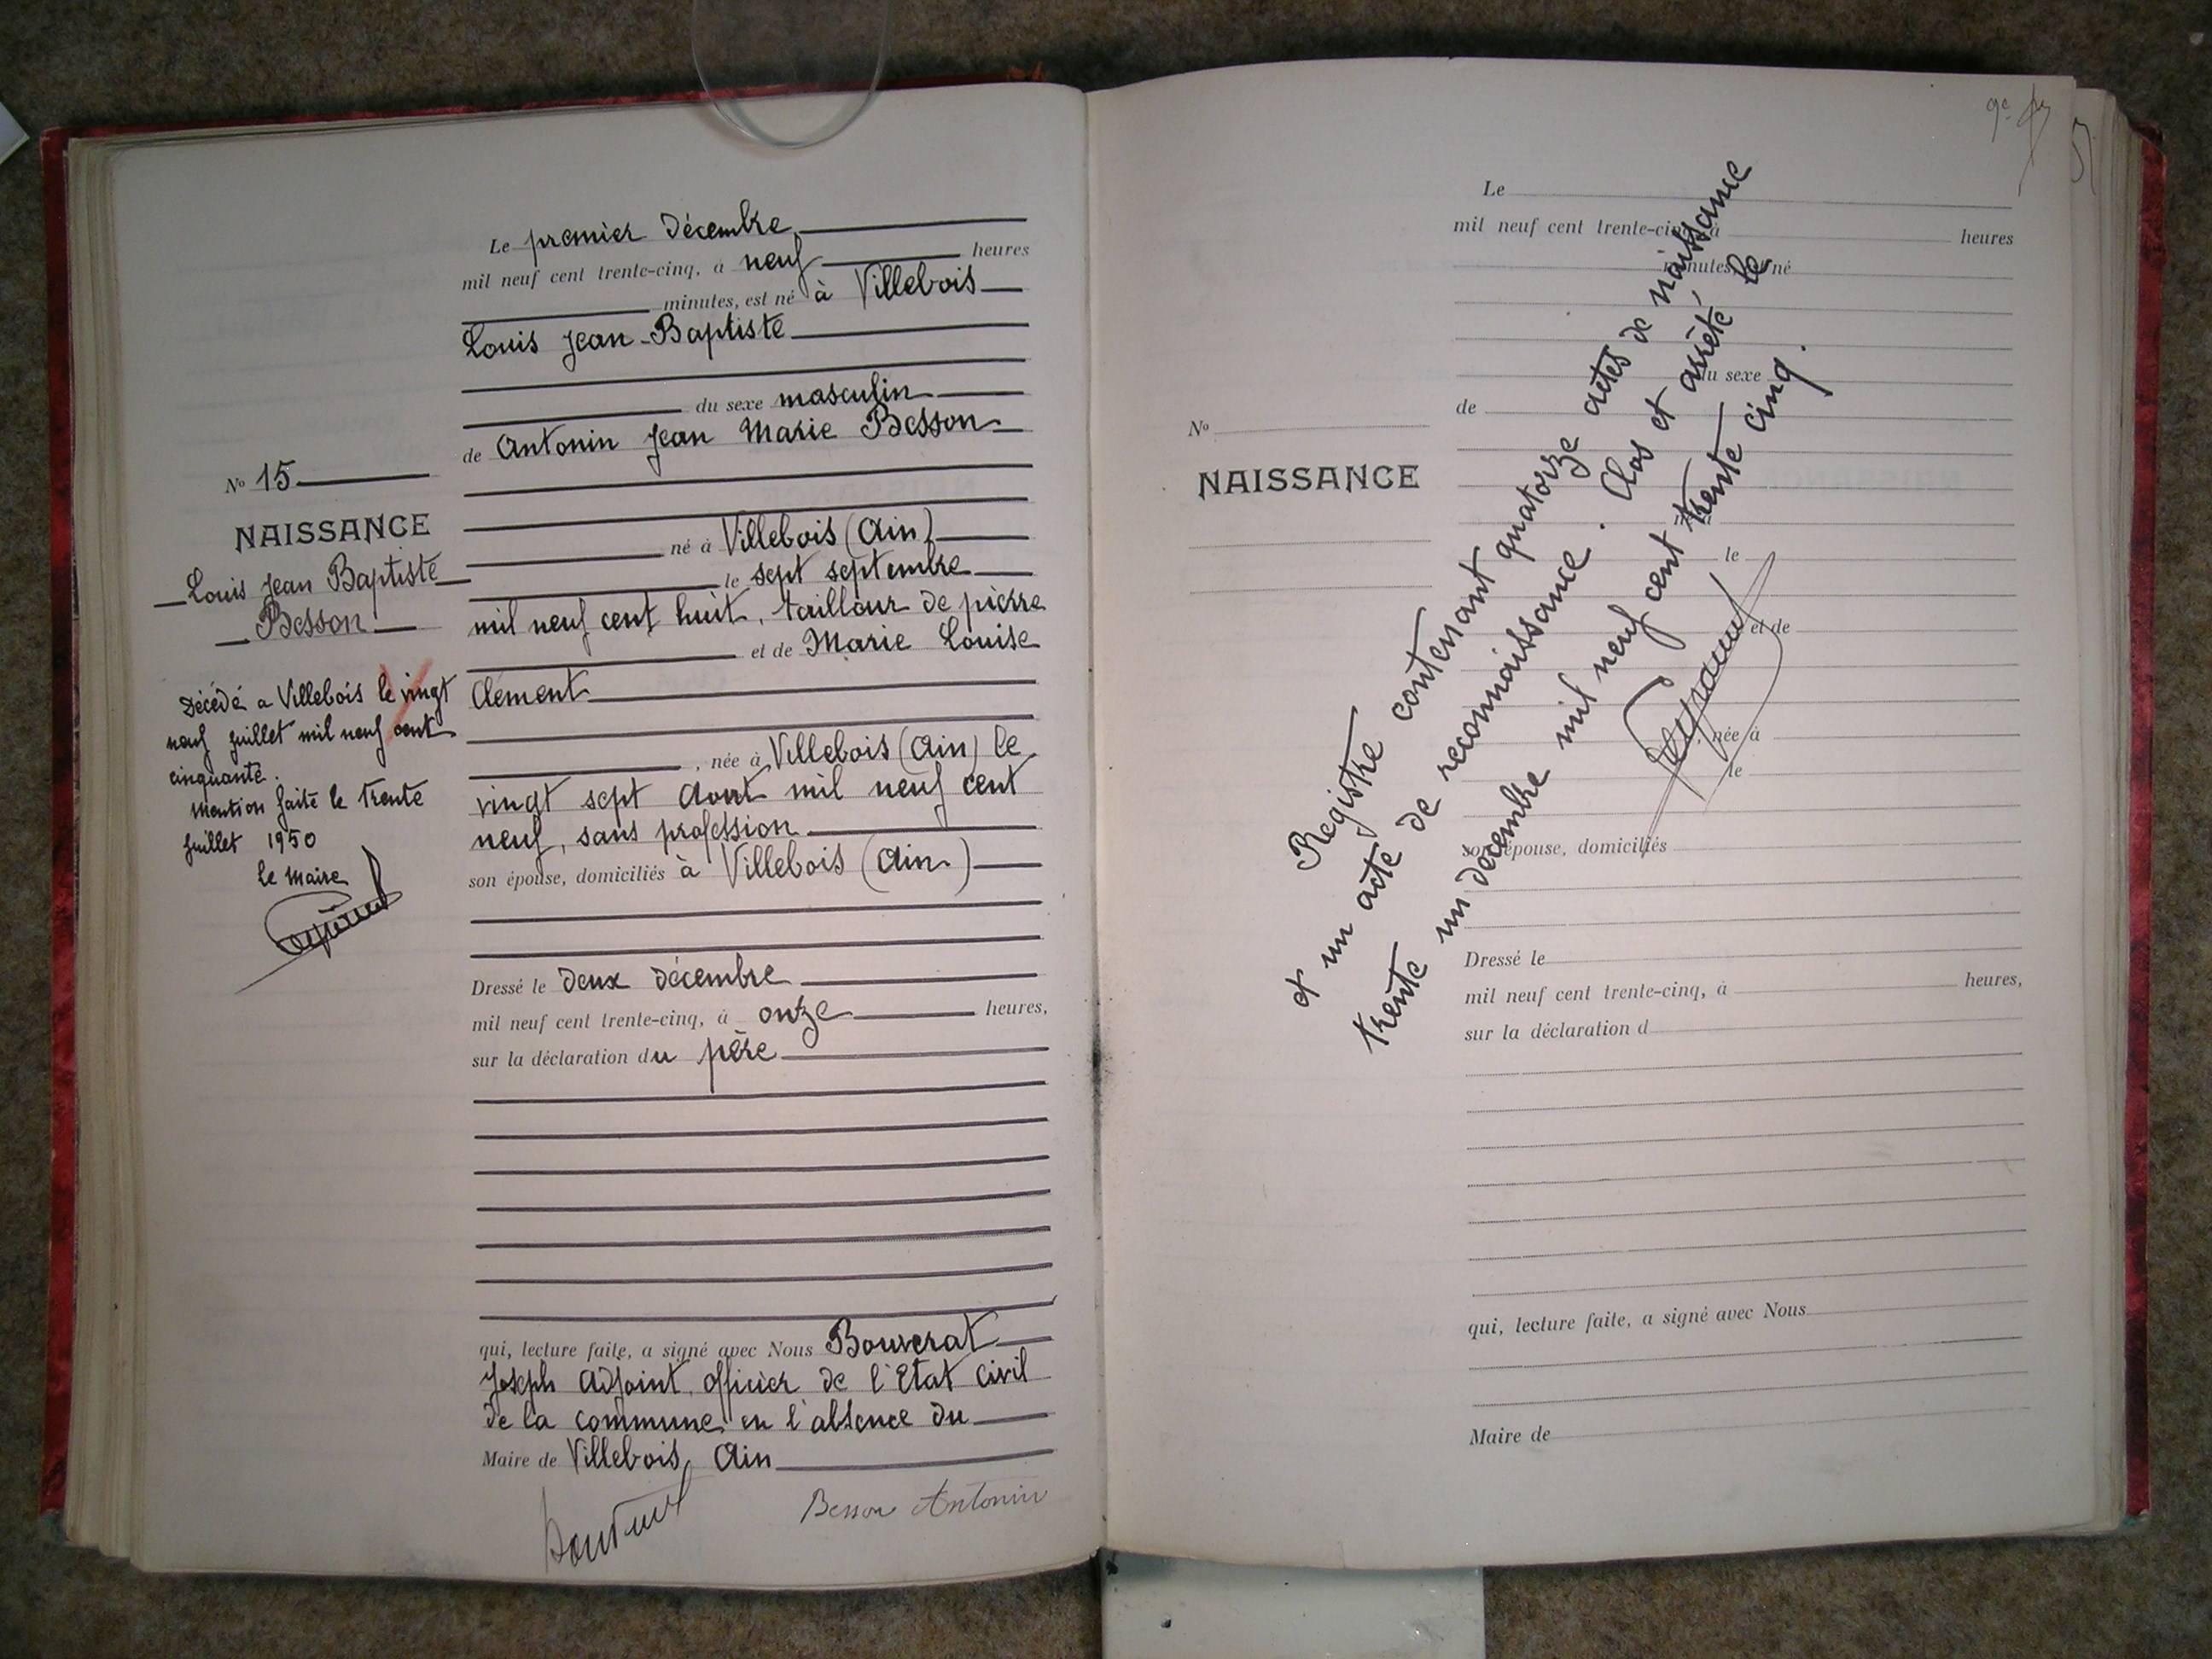 Le premier Décembre
mil neuf cent trente-cinq, à neuf heures
minutes, est né à Villebois
Louis Jean-Baptiste
du sexe masculin
de Antonin Jean Marie Besson
né à Villebois (Ain)
le sept septembre
mil neuf cent huit, tailleur de pierre
et de Marie Louise
Clément
, née à Villebois (Ain) le
vingt sept Aout mil neuf cent
neuf, sans profession
son épouse, domiciliés à Villebois (Ain)
Dressé le deux décembre
mil neuf cent trente-cinq, à onze heures,
sur la déclaration du père
qui, lecture faite, a signé avec Nous Bouverat
Joseph Adjoint, officier de l'Etat Civil
de la commune, en l'absence du
Maire de Villebois, Ain
Besson Antonin
No 15
NAISSANCE
Louis Jean Baptiste
Besson
Décédé a Villebois le vingt
neuf juillet mil neuf cent
cinquante.
Mention faite le trente
juillet 1950
le Maire
Le
mil neuf cent trente-cinq, à heures
minutes, est né
du sexe
de
No
NAISSANCE
le
et de
, née à
le
son épouse, domiciliés
Dressé le
mil neuf cent trente-cinq, à heures,
sur la déclaration d
qui, lecture faite, a signé avec Nous
Maire de
Registre contenant quatorze actes de naissance
et un acte de reconnaissance. Clos et arrêté, le
trente un décembre mil neuf cent trente cinq.